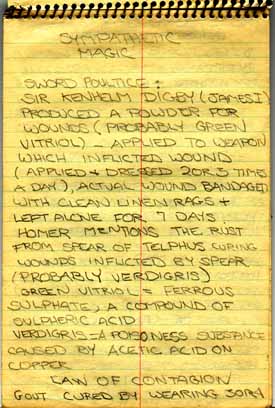 SYMPATHETIC
MAGIC
SWORD POULTICE:
SIR KENHELM DIGBY (JAMES I)
PRODUCED A POWDER FOR
WOUNDS (PROBABLY GREEN
VITRIOL) - APPLIED TO WEAPON
WHICH INFLICTED WOUND
(APPLIED + DRESSED 2 OR 3 TIMES
A DAY), ACTUAL WOUND BANDAGED
WITH CLEAN LINEN RAGS +
LEFT ALONE FOR 7 DAYS.
HOMER MENTIONS THE RUST
FROM SPEAR OF TELPHUS CURING
WOUNDS INFLICTED BY SPEAR
(PROBABLY VERDIGRIS)
GREEN VITRIOL = FERROUS
SULPHATE, A COMPOUND OF
SULPHERIC ACID
VERDIGRIS = A POISONESS SUBSTANCE
CAUSED BY ACETIC ACID ON
COPPER
LAW OF CONTAGION
GOUT CURED BY WEARING